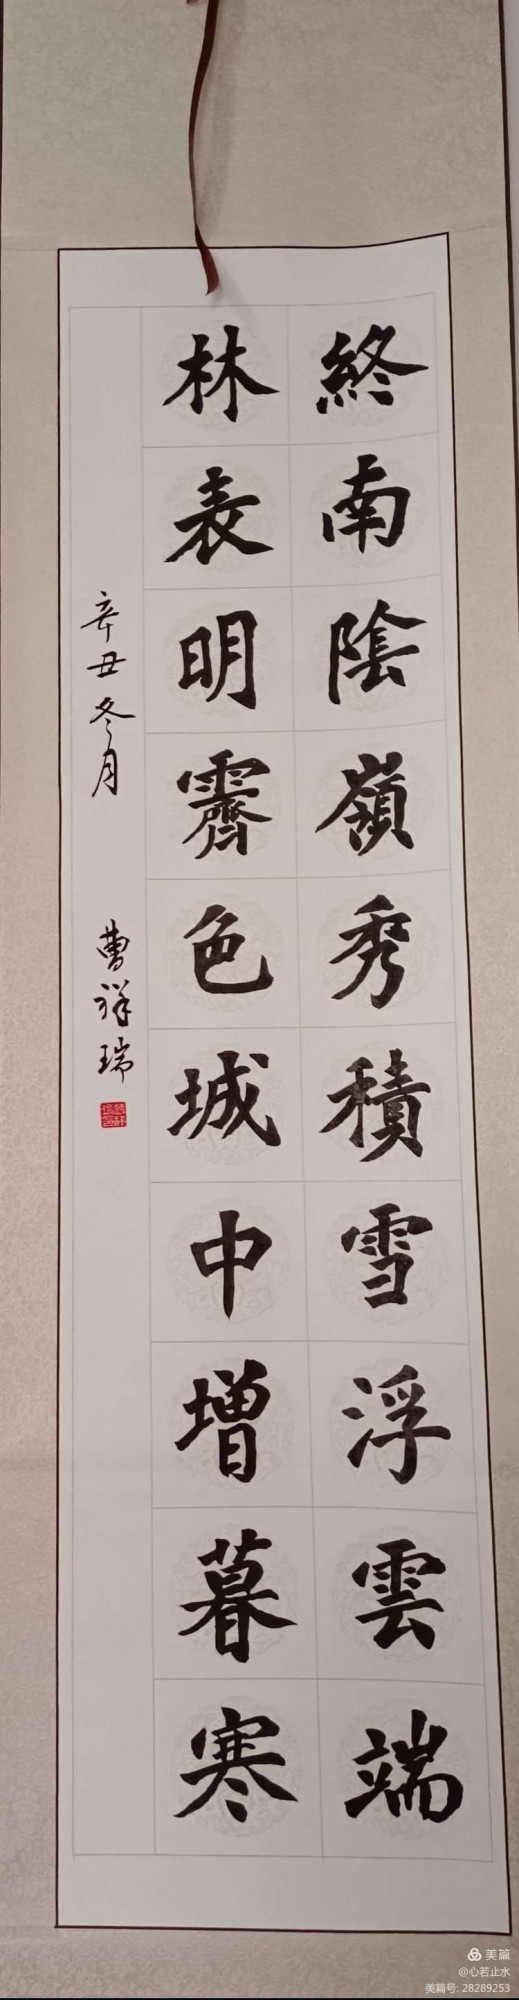 終南陰嶺秀積雪浮雲端
林表明霽色城中增暮寒
辛丑冬月 曹祥瑞
美篇
@心若止水
美篇号: 28289253